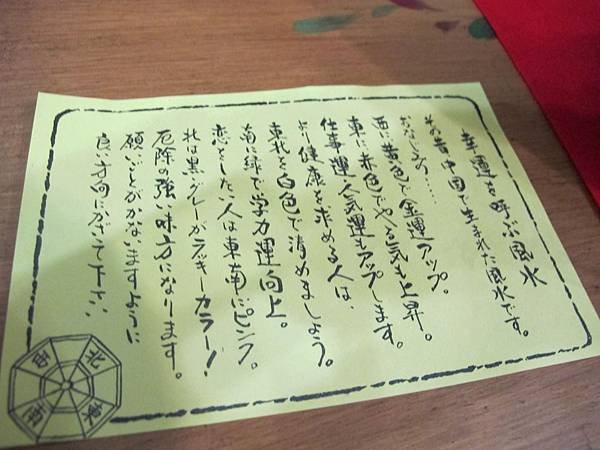 幸運を呼ぶ風水
その昔中国で生まれた風水です。
おなじみの……
西に黄色で金運アップ。
東に赤色でやる気も上昇。
仕事運・人気運もアップします。
よい健康を求める人は、
東北を白色で清めましょう。
南に緑で学力運向上。
恋をしたい人は東南にピンク。
北は黒・グレーがラッキーカラー！
厄除の強い味方になります。
願いごとがかないますように
良い方向にかざって下さい
北
東
南
西